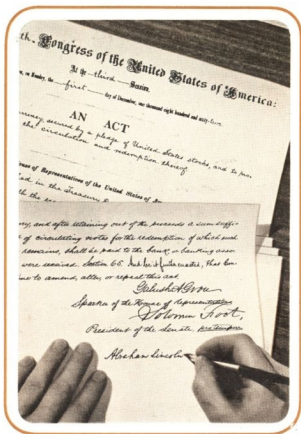 th. Congress of the United States of America:
At the third Session,
on Monday, the first day of December, one thousand eight hundred and sixty-two
AN ACT
rency, secured by a pledge of United States stocks, and to pro
the circulation and redemption thereof
of Representatives of the United States of
in the Treasury
ry, and after retaining out of the proceeds a sum suffi
of circulating notes for the redemption of which such
remains, shall be paid to the bank, or banking asso
were received. Section 65. And be it further enacted, That Con
time to amend, alter, or repeal this act
Galusha A Grow
Speaker of the House of Representatives
Solomon Foot,
President of the Senate pro tempore
Abraham Lincoln